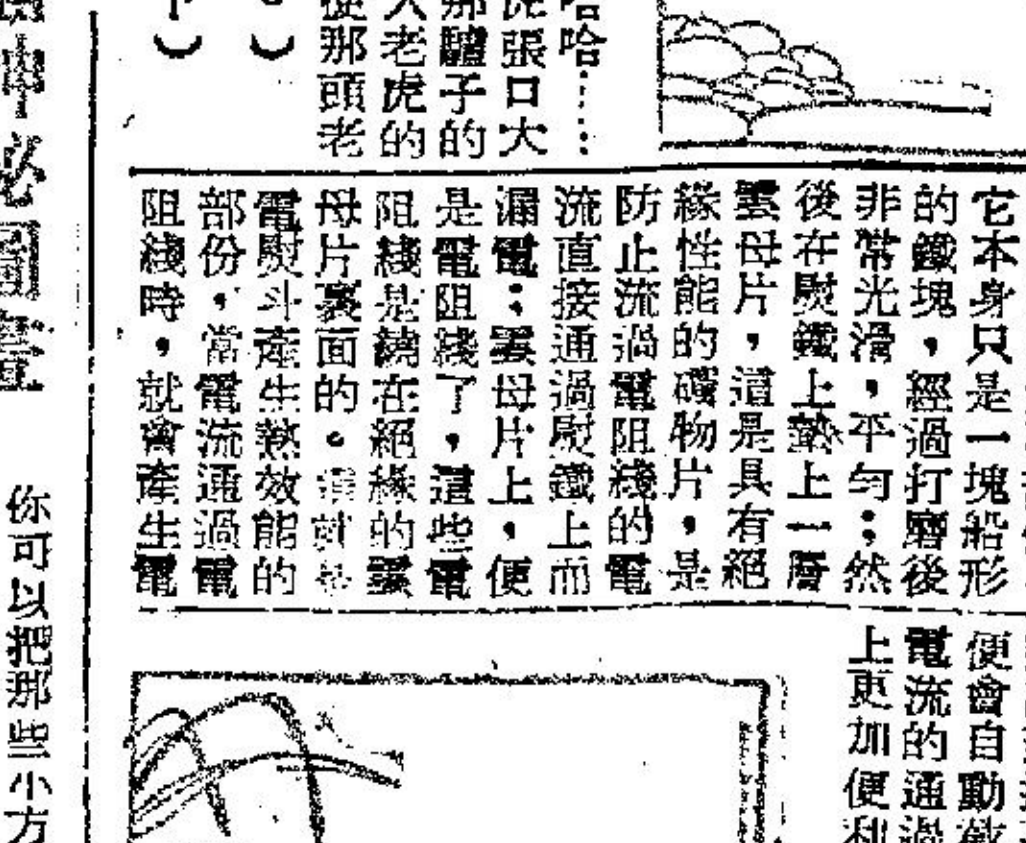 哈哈……
虎張口大
那驢子的
大老虎的
從那頭老
它本身只是一塊船形
的鐵塊,經過打磨後
非常光滑,平勻;然
後在熨鐵上墊上一層
雲母片,這是具有絕
緣性能的礦物片,是
防止流過電阻綫的電
流直接通過熨鐵上而
漏電;雲母片上,便
是電阻綫了,這些電
阻綫是繞在絕緣的雲
母片裏面的。這就是
電熨斗產生熱效能的
部份,當電流通過電
阻綫時,就會產生電
便會自動
電流的通過
上更加便利
你可以把那些小方